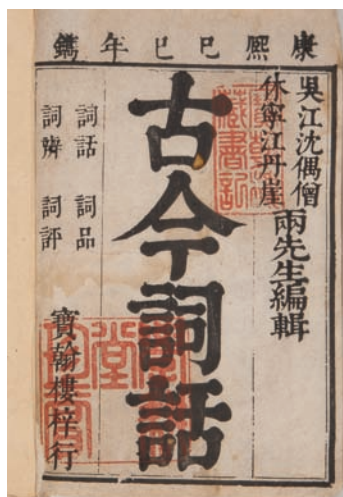 康熙巳巳年鐫
吳江沈偶僧
休寧江丹崖
兩先生編輯
古今詞話
詞話 詞品
詞辨 詞評
寶翰樓梓行
藏書記